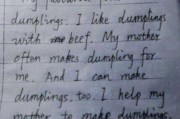 dumplings. I like dumplings
with beef. My mother
often makes dumpling for
me. And I can make
dumplings, too. I help my
mother to make dumplings.